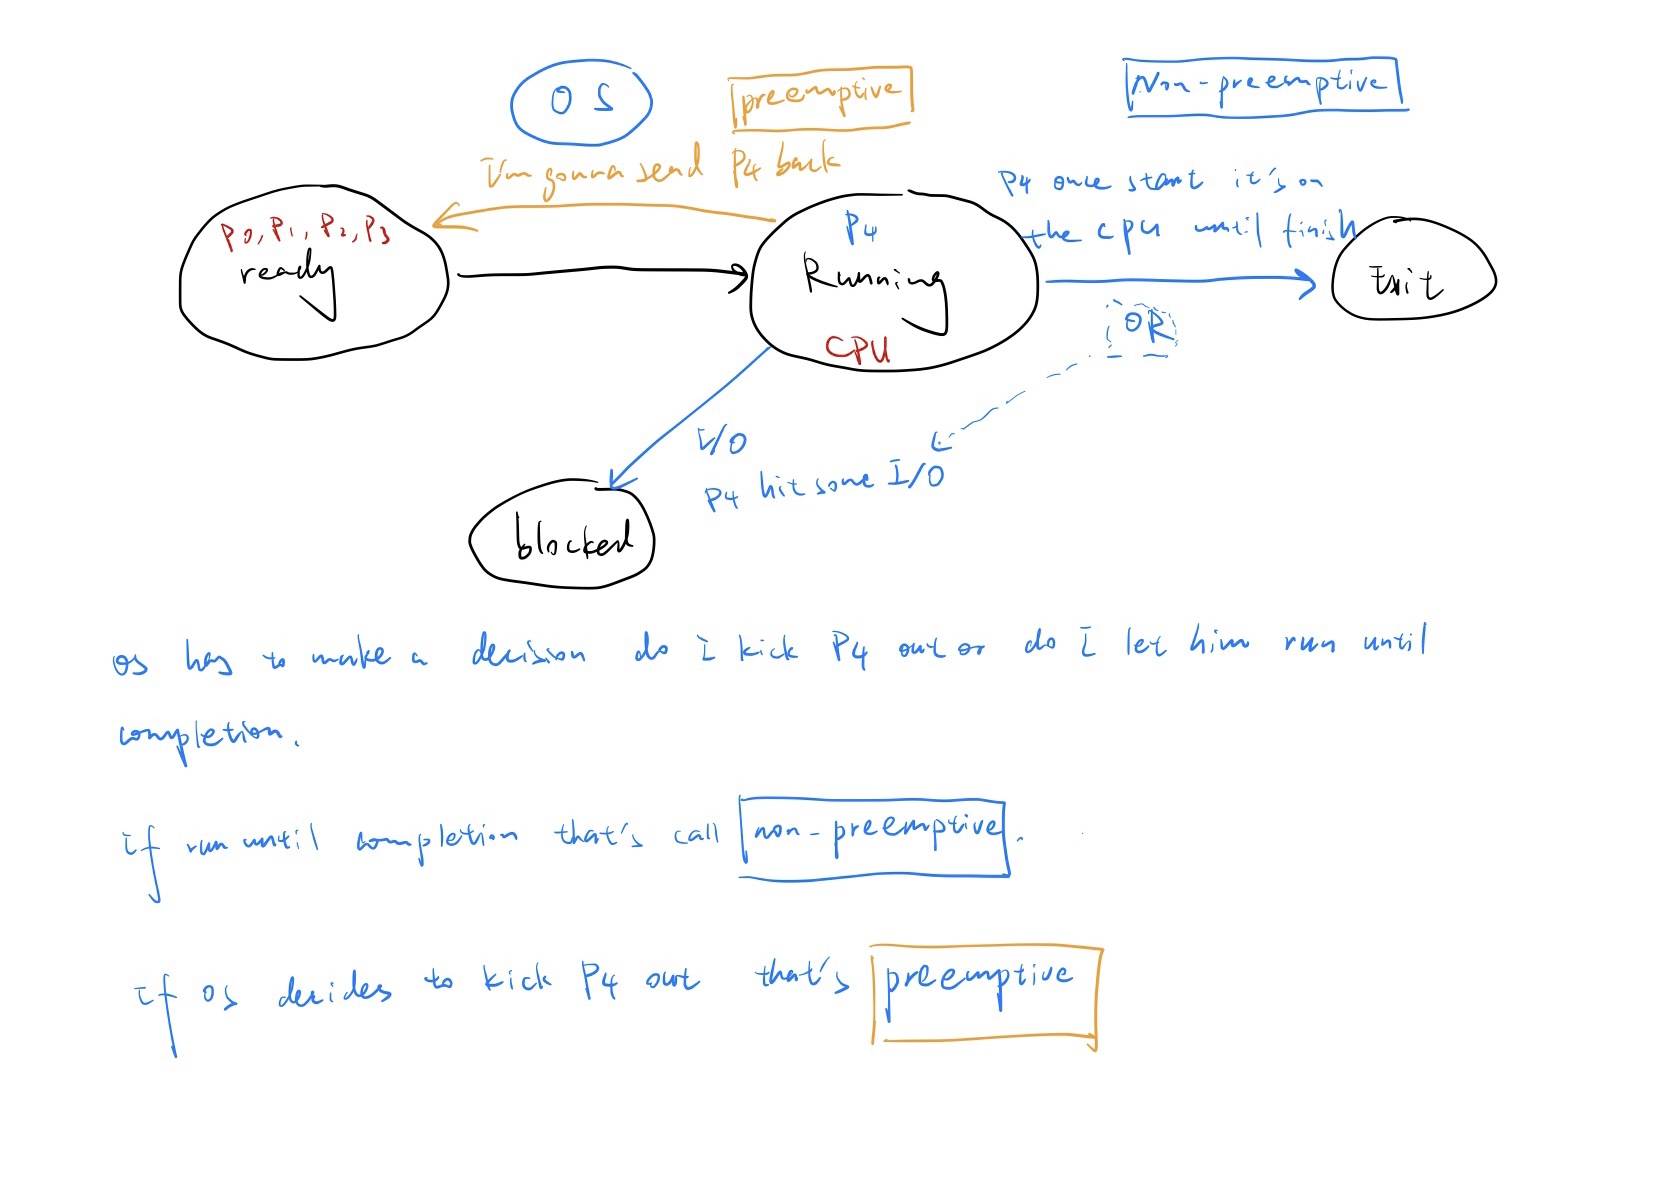 OS
preemptive
Non-preemptive
I'm gonna send P4 back
P4 once start it's on
the cpu until finish
P0, P1, P2, P3
ready
P4
Running
CPU
Exit
OR
I/O
P4 hit some I/O
blocked
OS has to make a decision do I kick P4 out or do I let him run until
completion.
If run until completion that's call non-preemptive.
If OS decides to kick P4 out that's preemptive